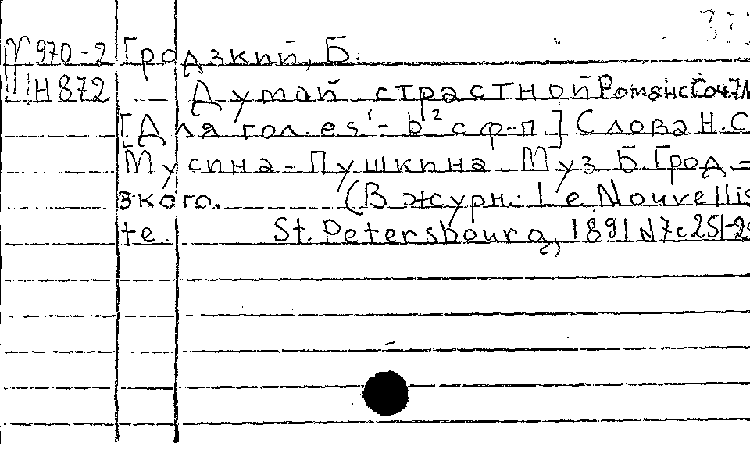 970-2 Гродзкий, Б.
Н872 Думой страстной Романс Соч.
[Для гол. es¹-b² с ф-п.] Слова Н.С
Мусина-Пушкина Муз Б. Грод-
зкого. (В журн: Le Nouvellis
te. St. Petersbourg, 1891 N7c251-